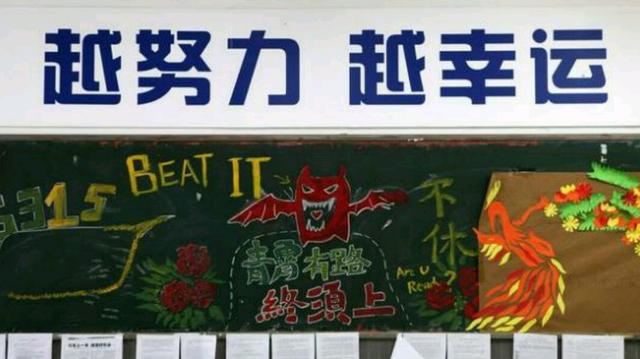 越努力 越幸运
6315
BEAT IT
不休
青霄有路
終須上
Art U
Ready?